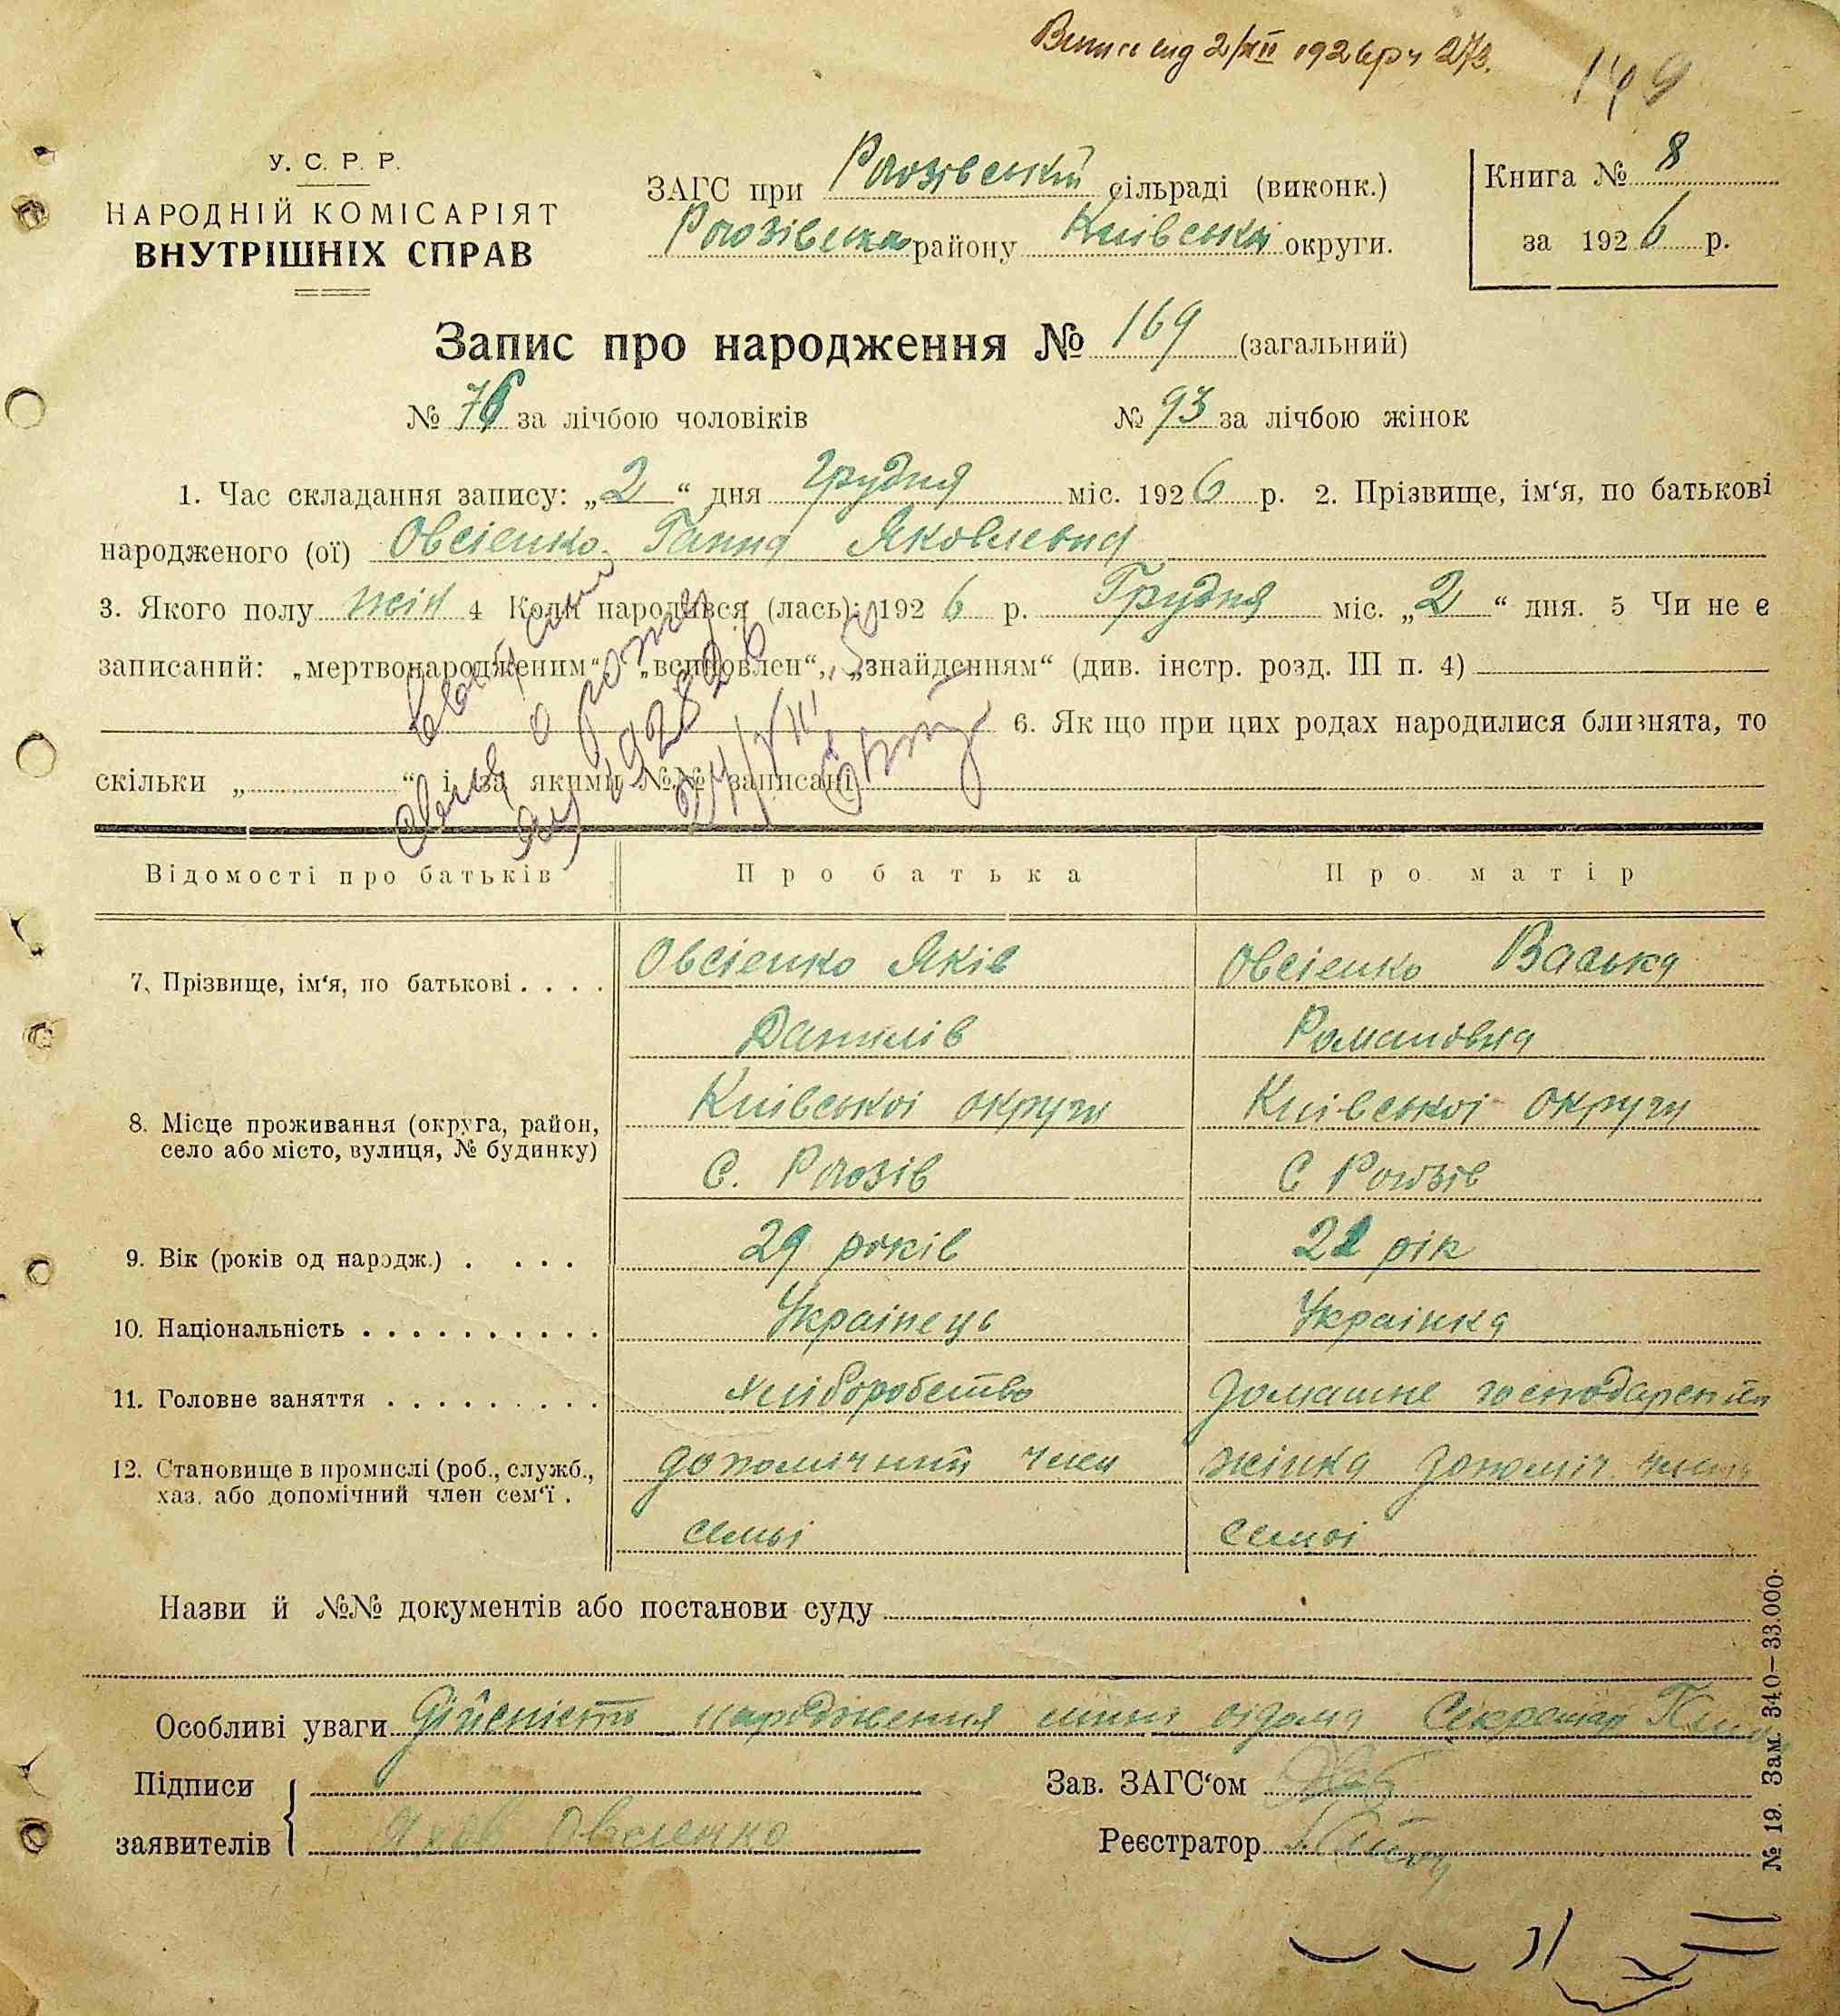 Випис від 2/XII 1926 р ч 273.
149
У. С. Р. Р.
НАРОДНІЙ КОМІСАРІЯТ
ВНУТРІШНІХ СПРАВ
ЗАГС при Рогозівській сільраді (виконк.)
Рогозівська району Київська округи.
Книга № 8
за 1926 р.
Запис про народження № 169 (загальний)
№ 76 за лічбою чоловіків № 93 за лічбою жінок
1. Час складання запису: „2“ дня Грудня міс. 1926 р. 2. Прізвище, ім‘я, по батькові
народженого (ої) Овсіенко Ганна Яковлевна
3. Якого полу жін 4 Коли народився (лась): 1926 р. Грудня міс. „2“ дня. 5 Чи не є
записаний: „мертвонародженим“, „всиновлен“, „знайденням“ (див. інстр. розд. III п. 4)
6. Як що при цих родах народилися близнята, то
скільки „ “ і за якими №№ записані
Відомості про батьків Про батька Про матір
7. Прізвище, ім‘я, по батькові . . . . Овсіенко Яків Овсіенко Васька
Данилів Романовна
8. Місце проживання (округа, район, село або місто, вулиця, № будинку) Київськоі округи Київськоі округи
С. Рогозів С Рогозів
9. Вік (років од народж.) . . . . 29 років 21 рік
10. Національність . . . . . . . . . . Украінець Украінка
11. Головне заняття . . . . . . . . . хліборобство домашне господарство
12. Становище в промислі (роб., служб., хаз. або допомічний член сем‘ї . допомічний член жінка допоміч член
семьі семьі
Назви й №№ документів або постанови суду
Особливі уваги Дійсність народження мині відома Секретар
Підписи
заявителів Яков Овсіенко
Зав. ЗАГС‘ом
Реєстратор
№ 19. Зам. 340—33.000.